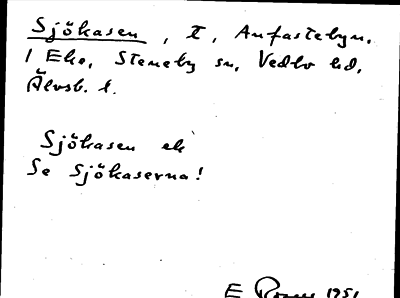 Sjökasen, t, Anfastebyn.
1 Eke, Steneby sn, Vedbo hd,
Älvsb. l.
Sjökasen ek
Se Sjökaserna!
E 1951